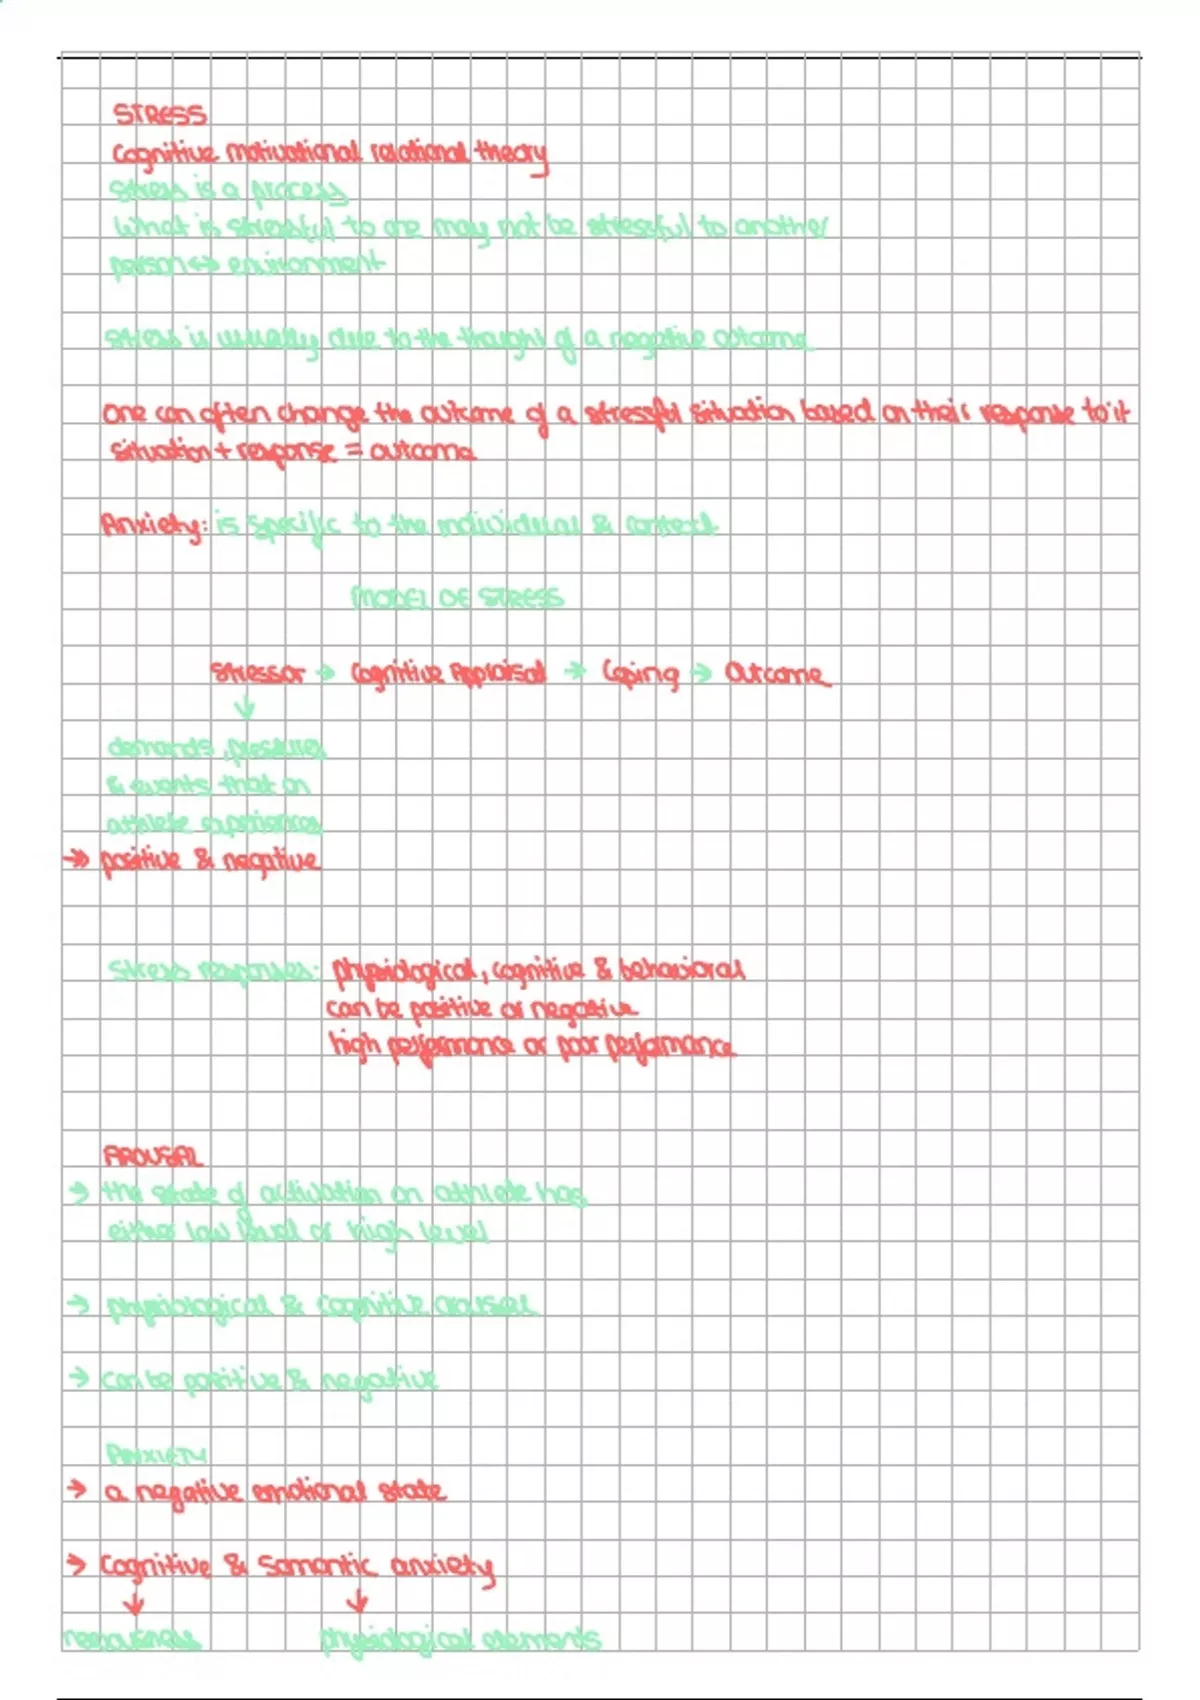 STRESS
Cognitive motivational relational theory
Stress is a process
What is stressful to one may not be stressful to another
person ↔ environment
stress is usually due to the thought of a negative outcome
One can often change the outcome of a stressful situation based on their response to it
situation + response = outcome
Anxiety: is specific to the individual & context
MODEL OF STRESS
Stressor → Cognitive Appraisal → Coping → Outcome
↓
demands, pressures,
& events that an
athlete experiences
→ positive & negative
Stress responses: physiological, cognitive & behavioral
can be positive or negative
high performance or poor performance
AROUSAL
→ the state of activation an athlete has
either low level or high level
→ physiological & cognitive arousal
→ can be positive & negative
ANXIETY
→ a negative emotional state
→ Cognitive & Somantic anxiety
↓ ↓
nervousness physiological elements